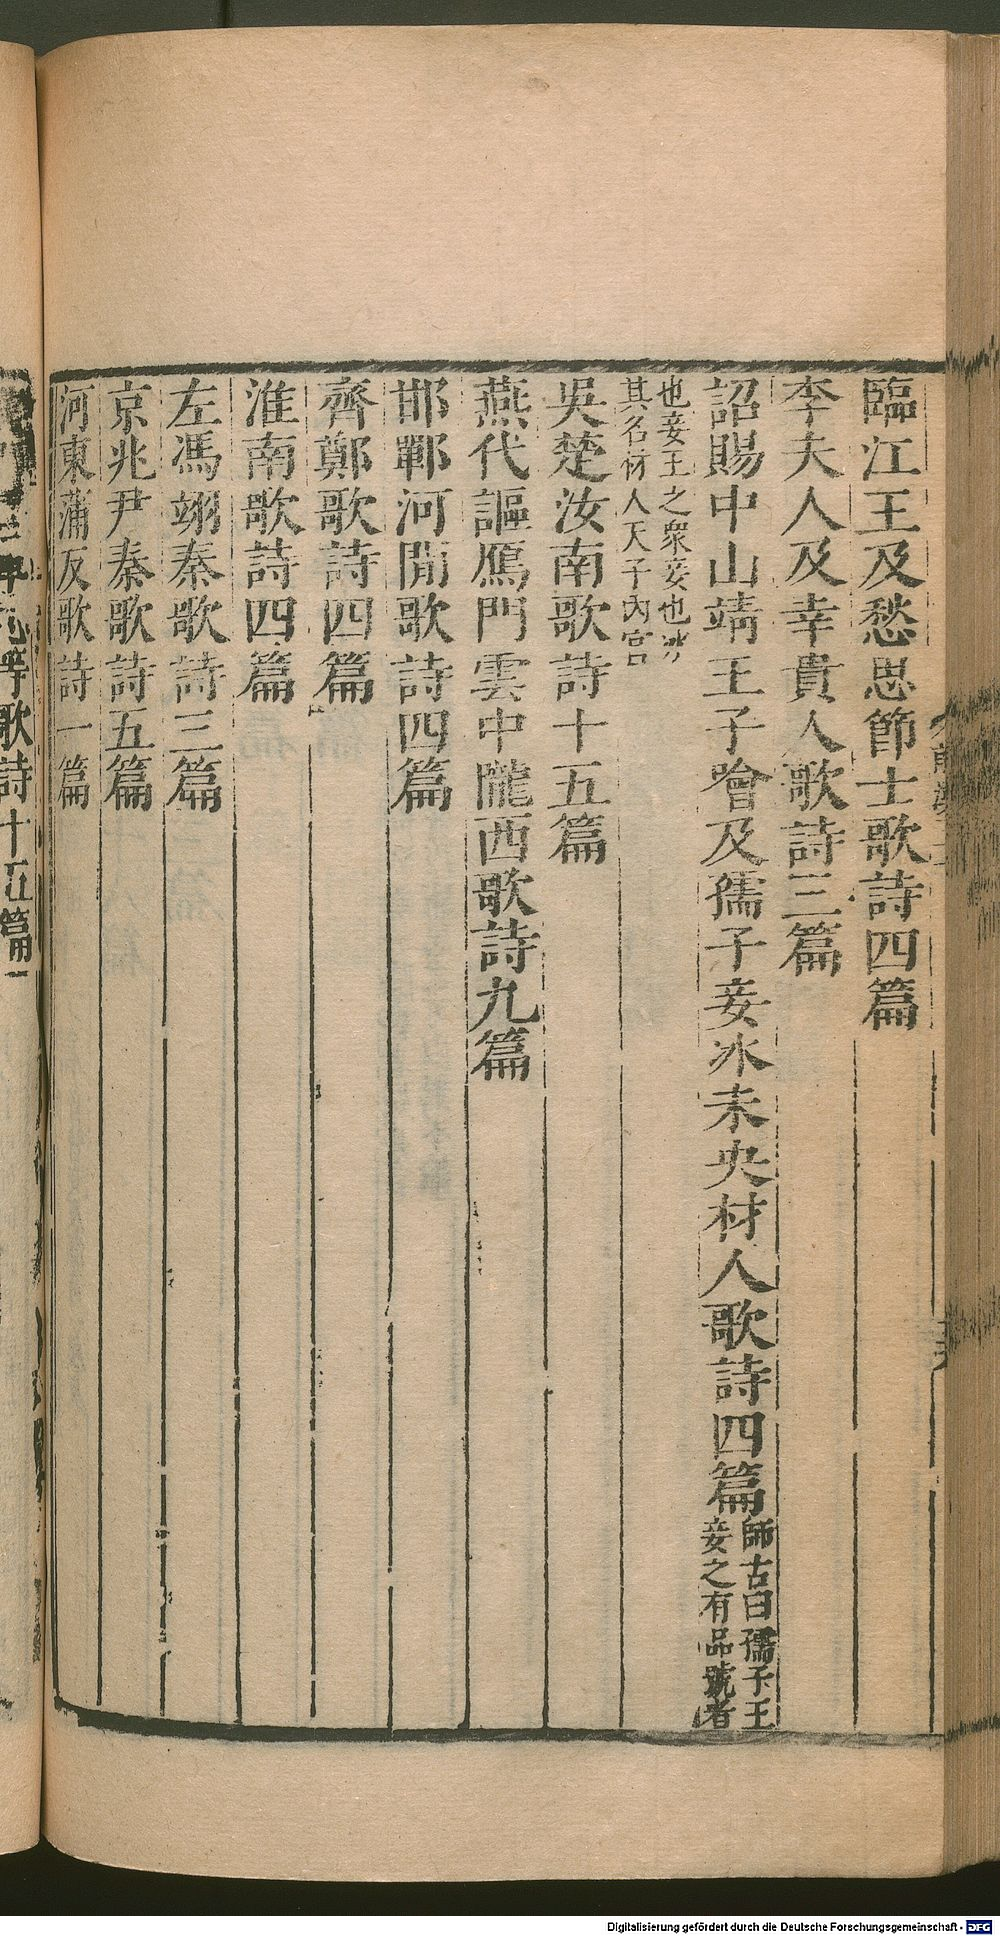 臨江王及愁思節士歌詩四篇
李夫人及幸貴人歌詩三篇
詔賜中山靖王子噲及孺子妾冰未央材人歌詩四篇師古曰孺子王
妾之有品號者
也妾王之衆妾也冰
其名材人天子內官
吳楚汝南歌詩十五篇
燕代謳鴈門雲中隴西歌詩九篇
邯鄲河間歌詩四篇
齊鄭歌詩四篇
淮南歌詩四篇
左馮翊秦歌詩三篇
京兆尹秦歌詩五篇
河東蒲反歌詩一篇
歌詩十五篇
Digitalisierung gefördert durch die Deutsche Forschungsgemeinschaft - DFG